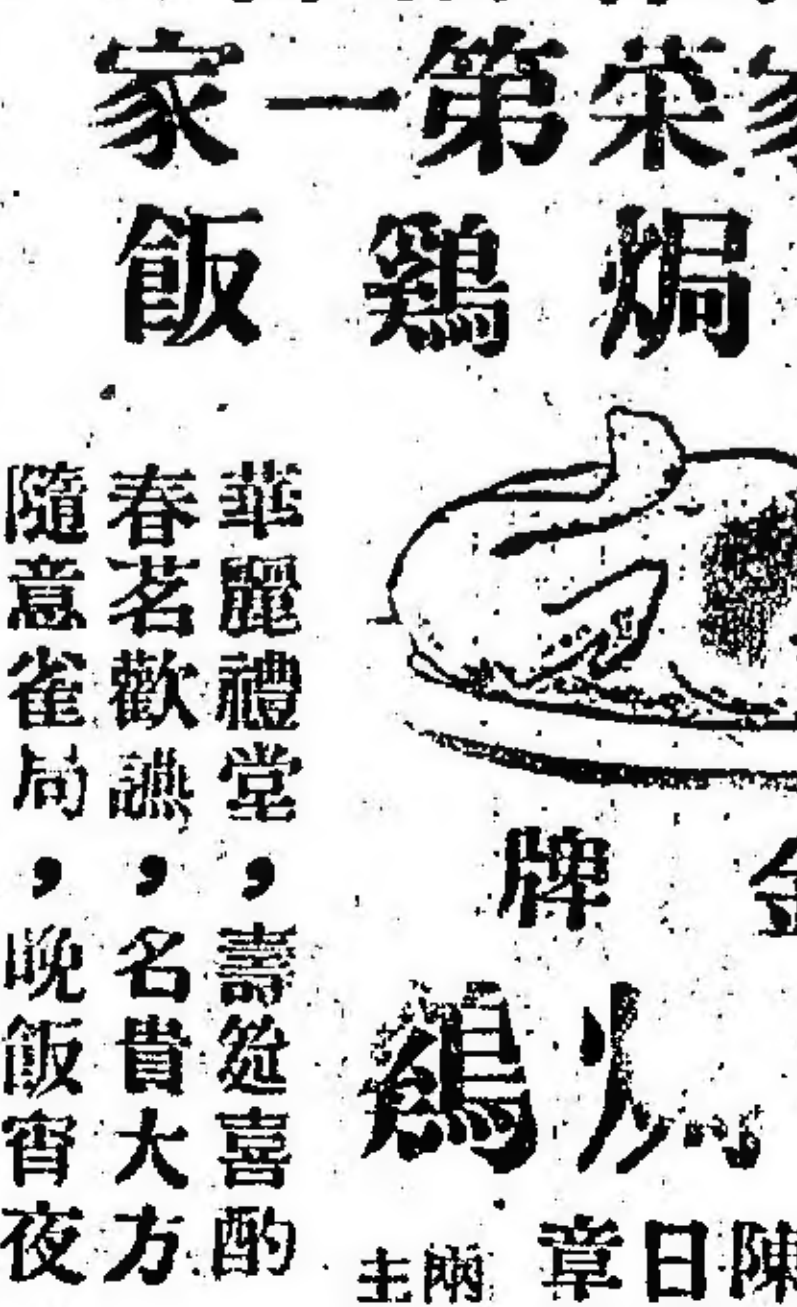 家菜第一家
焗鷄飯
華麗禮堂，壽筵喜酌
春茗歡讌，名貴大方
隨意雀局，晚飯宵夜
金牌
陳日章
主